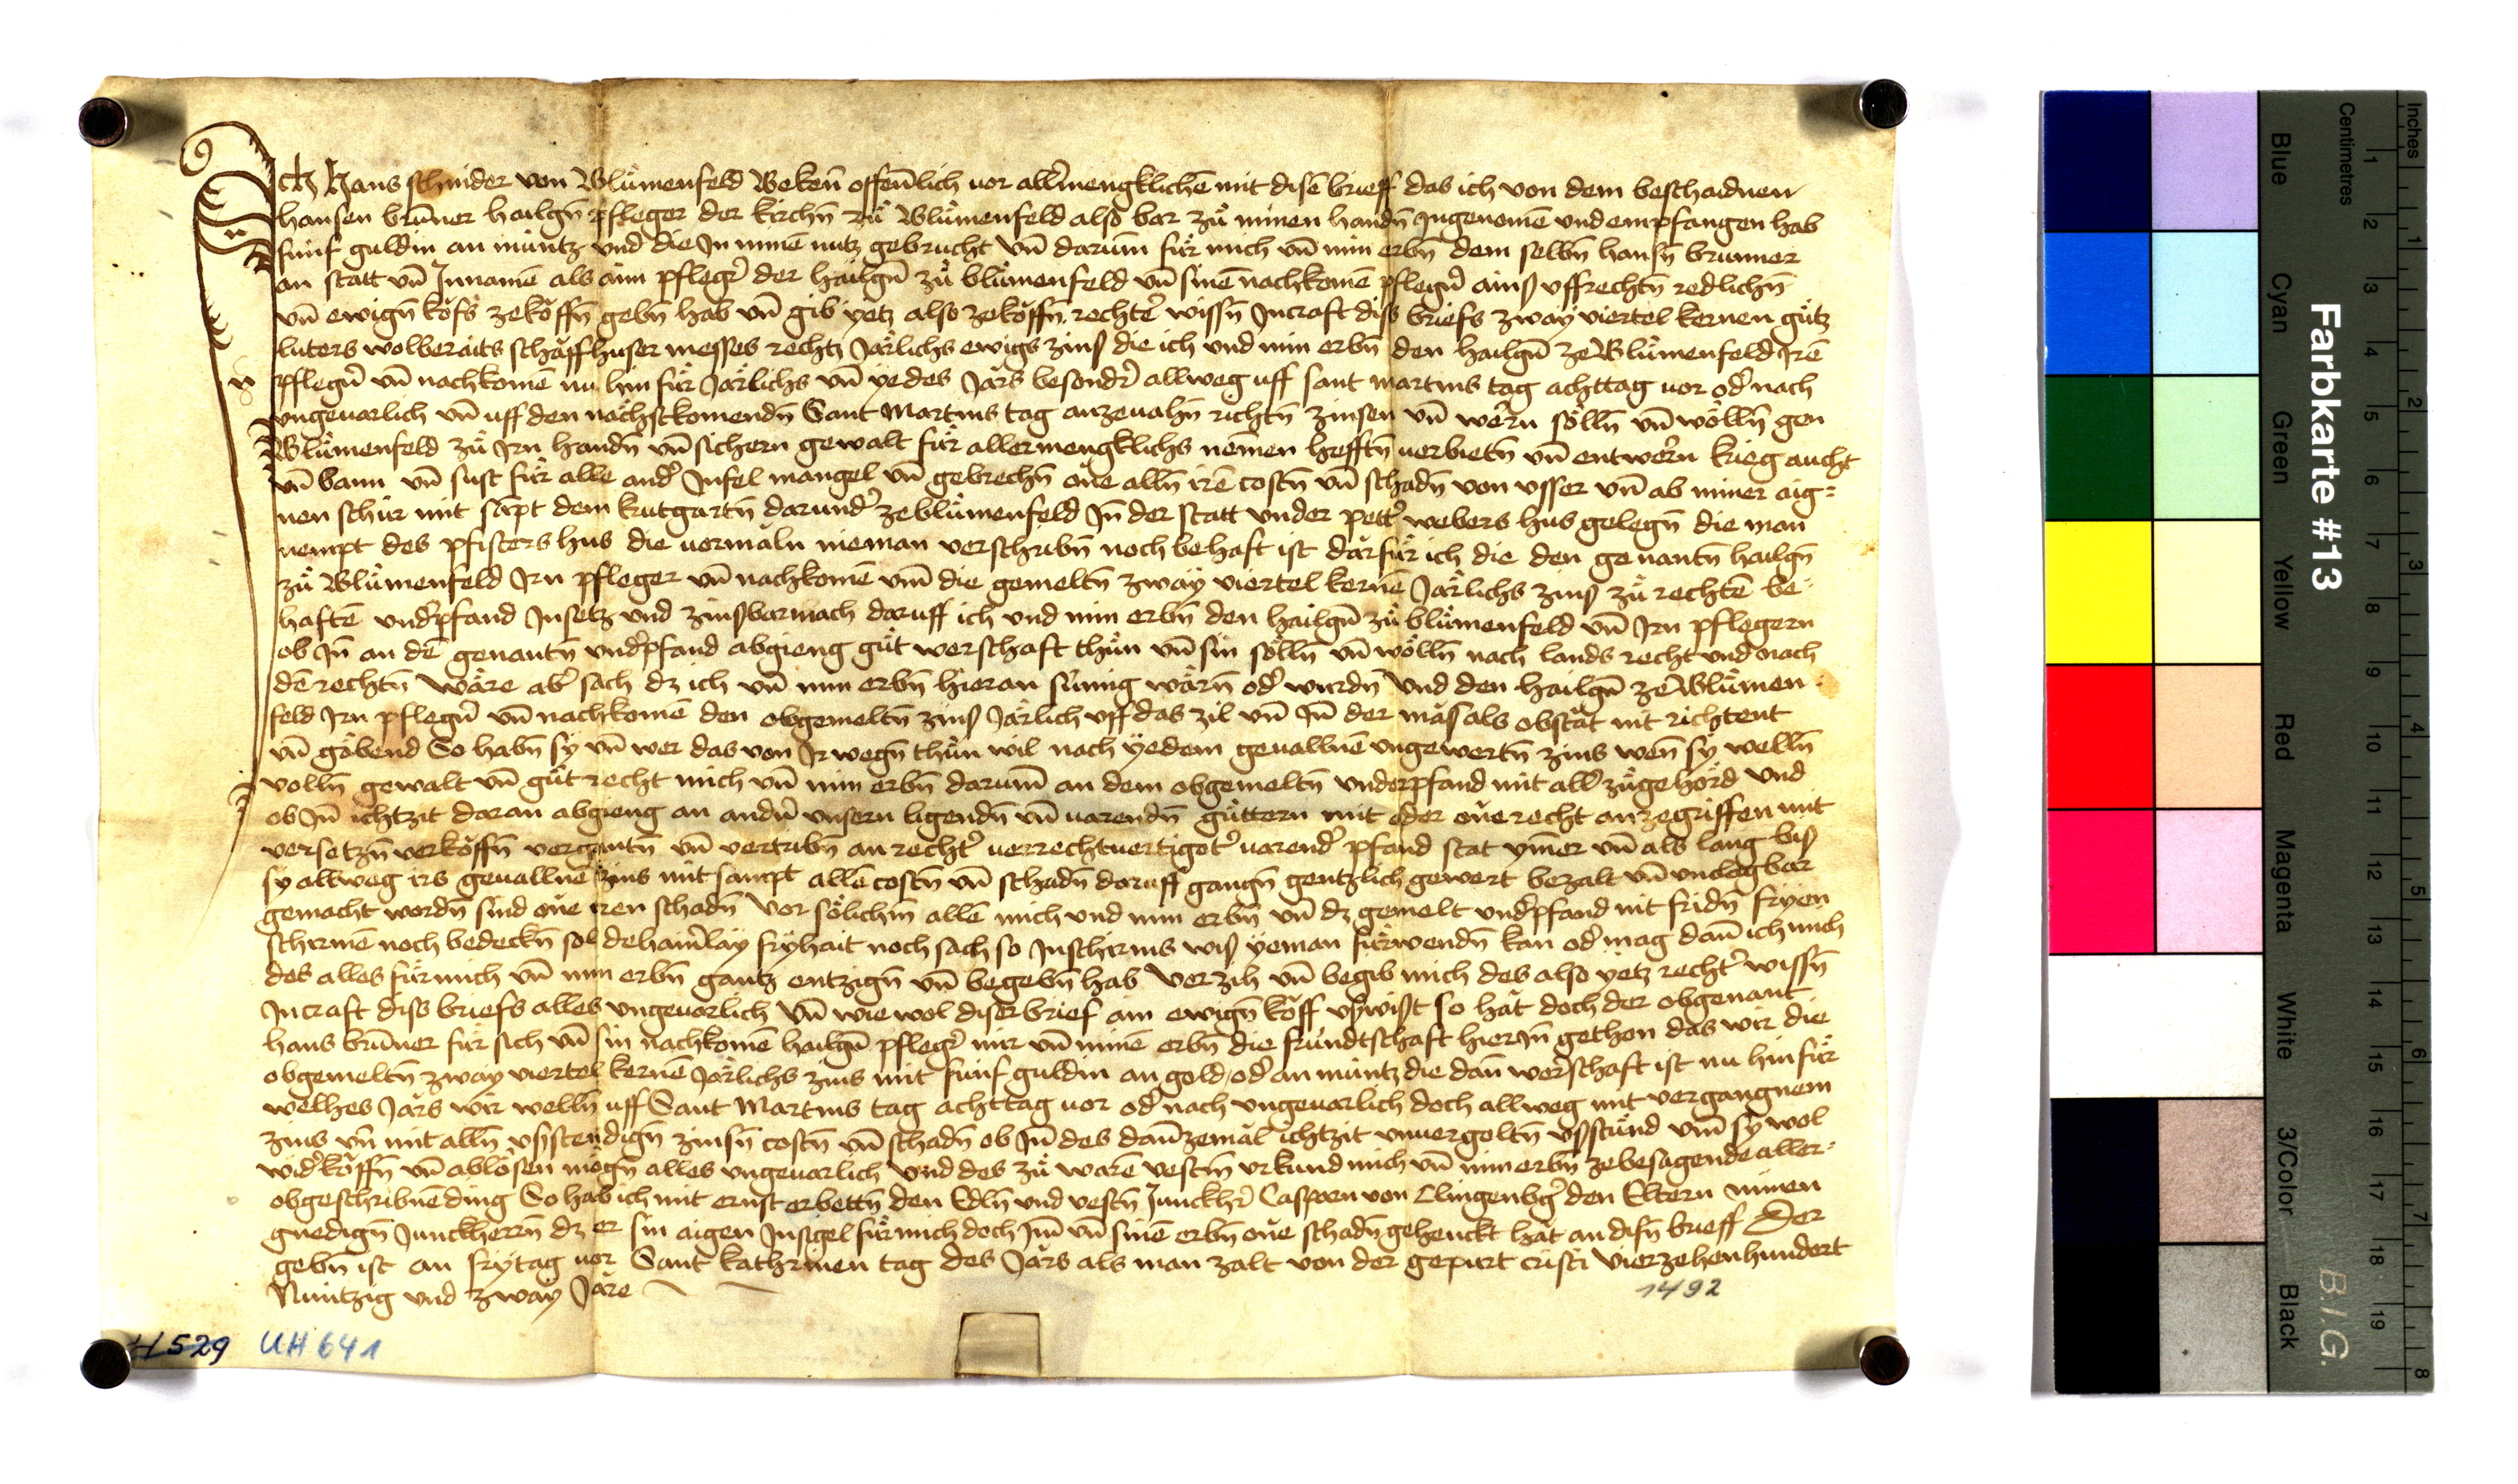 Ich Hans schnider von Blůmenfeld Beken̄ offenlich vor allermengklichē mit disē brieff das ich von dem beschaidnen
hansen brūner hailgn̄ pfleger der kirchn̄ zů Blůmenfeld also bar zů minen handn̄ Ingenomē und empfangen hab
fünf guldin an müntz und die In minē nutz gebrucht vn̄ darum̄ für mich vn̄ min erbn̄ dem selbn̄ hansn̄ brunner
an statt vn̄ Innamē als ain pfleger der hailgn̄ zů blůmenfeld vn̄ sinē nachkomē pflegern̄ ains uffrechtn̄ redlichn̄
vn̄ ewign̄ kőfs zekőffn̄ gebn̄ hab vn̄ gib yetz also zekőffn̄ rechter wissn̄ Incraft diss briefs zway viertel kernen gůtz
luters wolberaits schaffhuser messes rechtz Järlichs ewigs zins die ich und min erbn̄ den hailgn̄ ze Blůmenfeld Irē
pflegern̄ vn̄ nachkomē nu hin für Järlichs vn̄ yedes Järs besonder allweg uff sant martins tag achttag vor oder nach
ungevarlich vn̄ uff den nächstkomendn̄ Sant Martins tag anzevahn̄ richtn̄ zinsen vn̄ wern sölln̄ vn̄ wölln̄ gen
Blůmenfeld zů Irn handn̄ vn̄ sichern gewalt für allermengklichs nemen hefftn̄ verbietn̄ vn̄ entwern krieg aucht
vn̄ bann vn̄ sust für alle ander Infel mangel vn̄ gebrechn̄ one alln̄ irē costn̄ vn̄ schadn̄ von usser vn̄ ab miner aig=
nen schür mit sāpt dem krutgartn̄ darunder zeblůmenfeld In̄ der statt under petter webers hus gelegn̄ die man
nempt des pfisters hus die vormåln nieman verschribn̄ noch behaft ist därfür ich die den genantn̄ hailgn̄
zů Blůmenfeld Irn pfleger vn̄ nachkomē vm̄ die gemeltn̄ zway viertel kernē Järlichs zins zů rechtē be
haftē underpfand Insetz und zinsbar mach daruff ich und min erbn̄ den hailgn̄ zů blůmenfeld vn̄ Irn pflegern
ob In̄ an dē genantn̄ underpfand abgieng gůt werschaft thůn vn̄ sin sölln̄ vn̄ wölln̄ nach lands recht und nach
dē rechtn̄ Wäre aber sach dz ich vn̄ min erbn̄ hieran sümig wärn̄ oder wurdn̄ Und den hailgn̄ ze Blůmen
feld Irn pflegern̄ vn̄ nachkomē den obgemeltn̄ zins Järlich uff das zil vn̄ In̄ der mås als obståt nit richtent
vn̄ gäbend So habn̄ sy vn̄ wer das von Ir wegn̄ thůn wil nach yedem gevallnē ungewertn̄ zins wen̄ sy welln̄
volln̄ gewalt vn̄ gůt recht mich vn̄ min erbn̄ darum̄ an dem obgemeltn̄ underpfand mit aller zůgehörd Und
ob In̄ ichtzit daran abgieng an andern̄ unsern ligendn̄ vn̄ varendn̄ güttern mit oder one recht anzegriffen mit
versetzn̄ verköffn̄ vergantn̄ vn̄ vertribn̄ an rechter verrechtvertigoter varender pfand stat ym̄er vn̄ als lang bis
sy allweg irs gevallnē zins mit sampt allē costn̄ vn̄ schadn̄ doruff gangn̄ gentzlich gewert bezalt vn̄ unclagbar
gemacht wordn̄ sind one iren schadn̄ Vor sölichm allē mich und min erbn̄ vn̄ dz gemelt underpfand nit fridn̄ fryen
schirmē noch bedeckn̄ sol dehainerlay fryhait noch sach so Inschirms wis yeman fürwendn̄ kan oder mag dan̄ ich mich
des alles für mich vn̄ min erbn̄ gantz entzign̄ vn̄ begebn̄ hab Verzih vn̄ begib mich des also yetz rechter wissn̄
Incraft diss briefs alles ungevarlich Vn̄ wie wol diser brief ain ewign̄ köff uswist so håt doch der obgenant
hans brūner für sich vn̄ sin nachkomē hailgn̄ pfleger mir vn̄ minē erbn̄ die fründtschaft hierIn̄ gethon das wir die
obgemeltn̄ zway viertel kernē Järlichs zins mit fünf guldin an gold oder an müntz die dan̄ werschaft ist nu hinfür
welhes Järs wir welln̄ uff Sant Martins tag achttag vor oder nach ungevarlich doch allweg mit vergangnem
zins vn̄ mit alln̄ usstendign̄ zinsn̄ costn̄ vn̄ schadn̄ ob In̄ des dan̄zemål ichtzit unvergoltn̄ usstünd vm̄ sy wol
widerköffn̄ vn̄ ablösen mögn̄ alles ungevarlich Und des zů warē vestm urkund mich vn̄ min erbn̄ zebesagende aller
obgeschribnē ding So hab ich mit ernst erbettn̄ den Edln̄ und vestn̄ Junckher Casparn von Clingenbg den Eltern minen
gnedign̄ Junckherrn̄ dz er sin aigen Insigel für mich doch Im̄ vn̄ sinē erbn̄ one schadn̄ gehenckt håt an disn̄ brieff Der
gebn̄ ist an frytag vor Sant kathrinen tag des Järs als man zalt von der gepurt cristi Vierzehenhundert
Nüntzig und zway Järe
1492
H529 UH 641
Farbkarte #13
B.I.G.
Inches
Centimetres
1 2 3 4 5 6 7 8 9 10 11 12 13 14 15 16 17 18 19
1 2 3 4 5 6 7 8
Blue Cyan Green Yellow Red Magenta White 3/Color Black